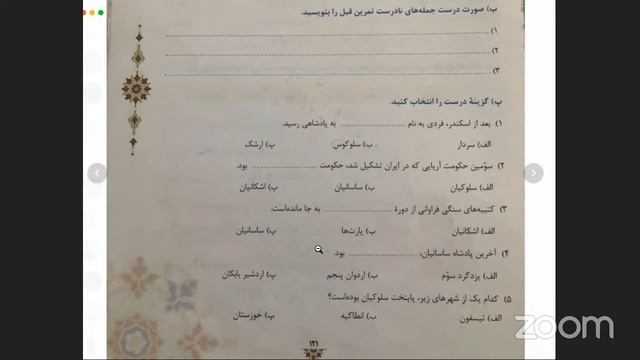 ب) صورت درست جمله‌های نادرست تمرین قبل را بنویسید.
۱) ........................................
۲) ........................................
۳) ........................................
پ) گزینهٔ درست را انتخاب کنید.
۱) بعد از اسکندر، فردی به نام .................... به پادشاهی رسید.
الف) سردار ب) سلوکوس پ) ارشک
۲) سوّمین حکومت آریایی که در ایران تشکیل شد، حکومت .................... بود.
الف) سلوکیان ب) ساسانیان پ) اشکانیان
۳) کتیبه‌های سنگی فراوانی از دورهٔ .................... به جا مانده‌است.
الف) اشکانیان ب) پارت‌ها پ) ساسانیان
۴) آخرین پادشاه ساسانیان، .................... بود.
الف) یزدگرد سوّم ب) اردوان پنجم پ) اردشیر بابکان
۵) کدام یک از شهرهای زیر، پایتخت سلوکیان بوده‌است؟
الف) تیسفون ب) انطاکیه پ) خوزستان
۱۲۱
zoom